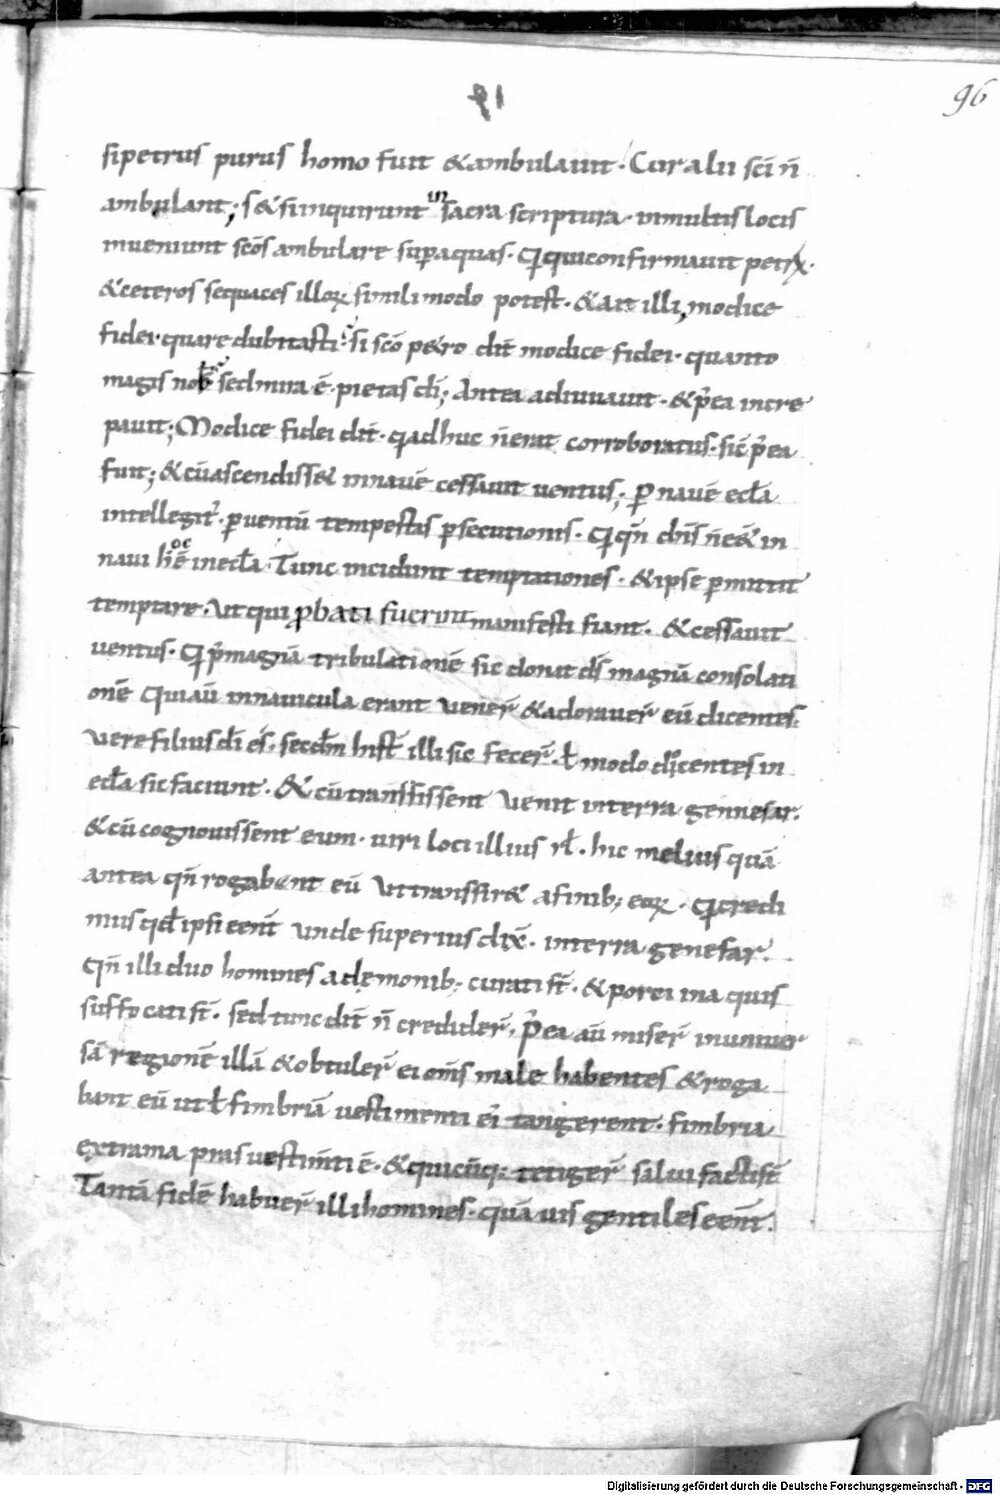 91
96
si petrus purus homo fuit & ambulauit. Cur alii sc̄i n̄
ambulant; s& si inquirunt in sacra scriptura. in multis locis
inueniunt sc̄os ambulare sup aquas. Qui confirmauit petrū.
& ceteros sequaces illoꝝ simili modo potest. & ait illi, modice
fidei. quare dubitasti. si sc̄o p&ro dit modice fidei. quanto
magis nob̄ sed mira ē pietas dī; Antea adiuuauit. & p̄ea incre
pauit; Modice fidei dit. q̄ adhuc n̄ erat corroboratus. sic p̄ea
fuit; & cū ascendiss& in nauē cessauit uentus; ꝑ nauē eccl̄a
intellegit̄. ꝑ uentū tempestas ꝑsecutionis. Q̄ qn̄ dn̄s n̄ e& in
naui h̄ ē hoc in eccl̄a. Tunc incidunt temptationes. & ipse ꝑmittit
temptare. Ut qui ꝓbati fuerint manifesti fiant. & cessauit
uentus. Q̄ p̄ magnā tribulationē sic donat dš magnā consolati
onē Qui aū in nauicula erant uener̄ & adorauer̄ eū dicentes.
Vere filius dī es. secdm̄ hist̄ illi sic fecer̄. ł modo dicentes in
eccl̄a sic faciunt. & cū transfissent venit in terra gennesar.
& cū cognouissent eum. uiri loci illius rł. hic melius quā
antea qn̄ rogabent eū ut transsir& a finib; eoꝝ. Q̄ credi
mus qd̄ ipsi eent̄ unde superius dix̄. in terra genesar.
Qn̄ illi duo homines a demonib; curati st̄. & porci in a quis
suffocati st̄. sed tunc dit n̄ credider̄. p̄ea aū miser̄ in uniuer
sā regionē illā & obtuler̄ ei om̄s male habentes & roga
bant eū ut ł fimbriā uestimenti ei' tangerent. fimbria
extrama pras uestim̄ti ē. & quicūq; tetiger̄ salui facti st̄
Tantā fidē habuer̄ illi homines. quā uis gentiles eent̄.
Digitalisierung gefördert durch die Deutsche Forschungsgemeinschaft - DFG